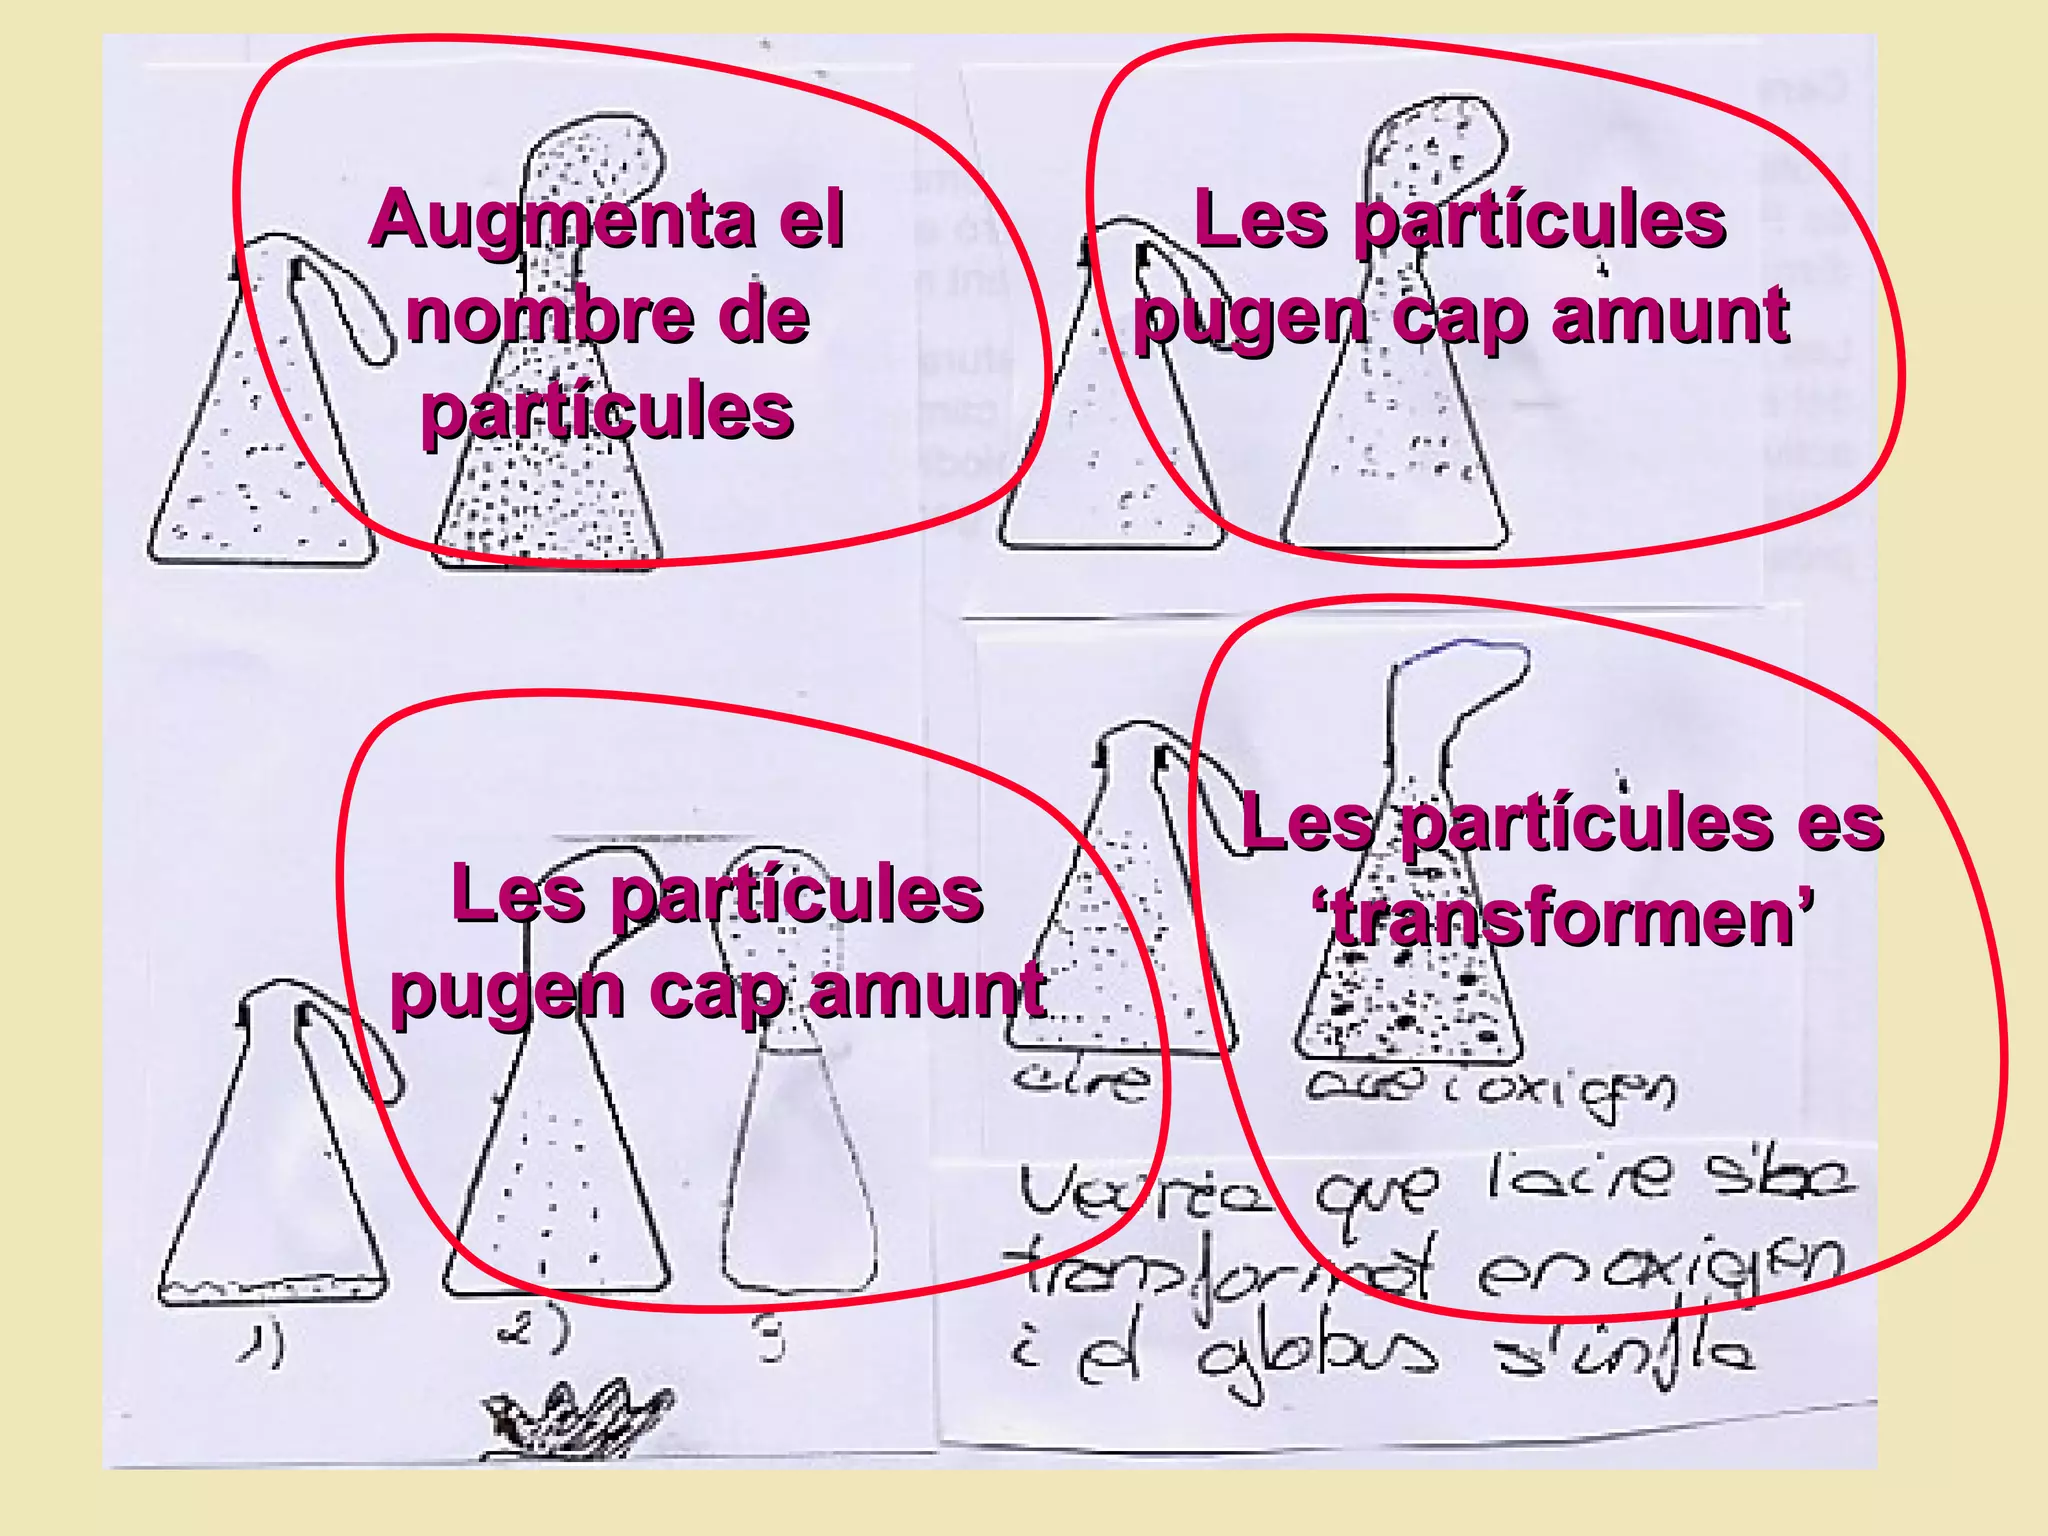 Augmenta el
nombre de
partícules
Les partícules
pugen cap amunt
Les partícules
pugen cap amunt
1)
2)
3
Les partícules es
‘transformen’
aire
aire i oxigen
Veuria que l'aire s'ha
transformat en oxigen
i el globus s'infla